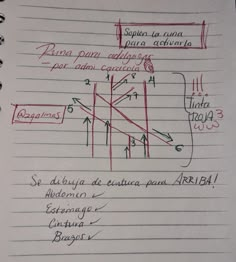 Soplen la runa
para activarla
Runa para adelgazar
- por admi caracola
8
1
2
4
7
5
Bagalmas
Tinta
ROJA
3
6
Se dibuja de cintura para ARRIBA!
Abdomen ✓
Estomago ✓
Cintura ✓
Brazos ✓